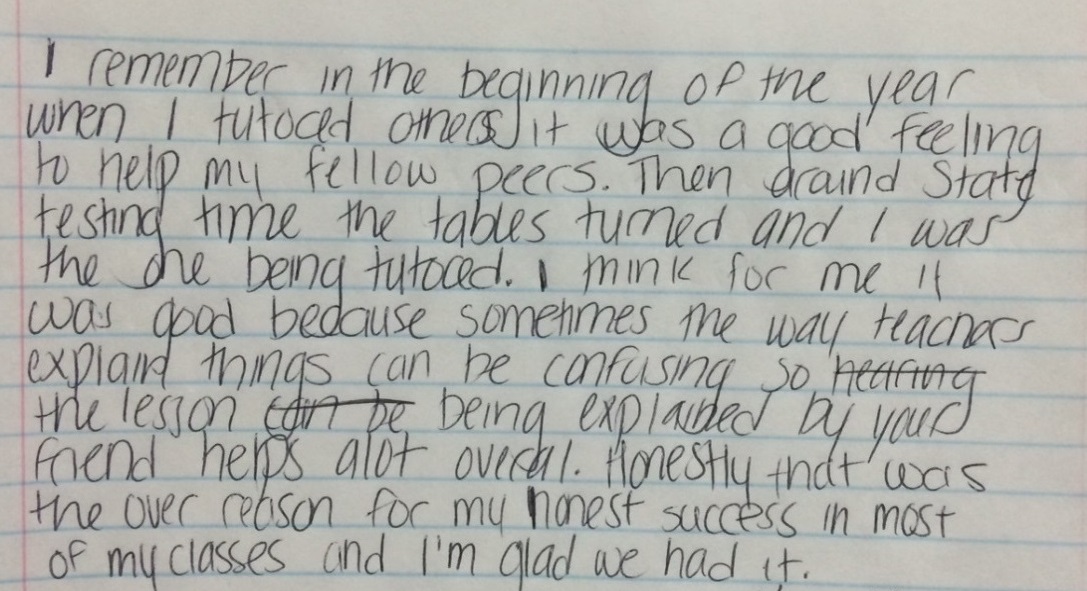 I remember in the beginning of the year
when I tutored others it was a good feeling
to help my fellow peers. Then around State
testing time the tables turned and I was
the one being tutored. I think for me it
was good because sometimes the way teachers
explain things can be confusing so hearing
the lesson can be being explained by your
friend helps alot overall. Honestly that was
the over reason for my honest success in most
of my classes and I'm glad we had it.